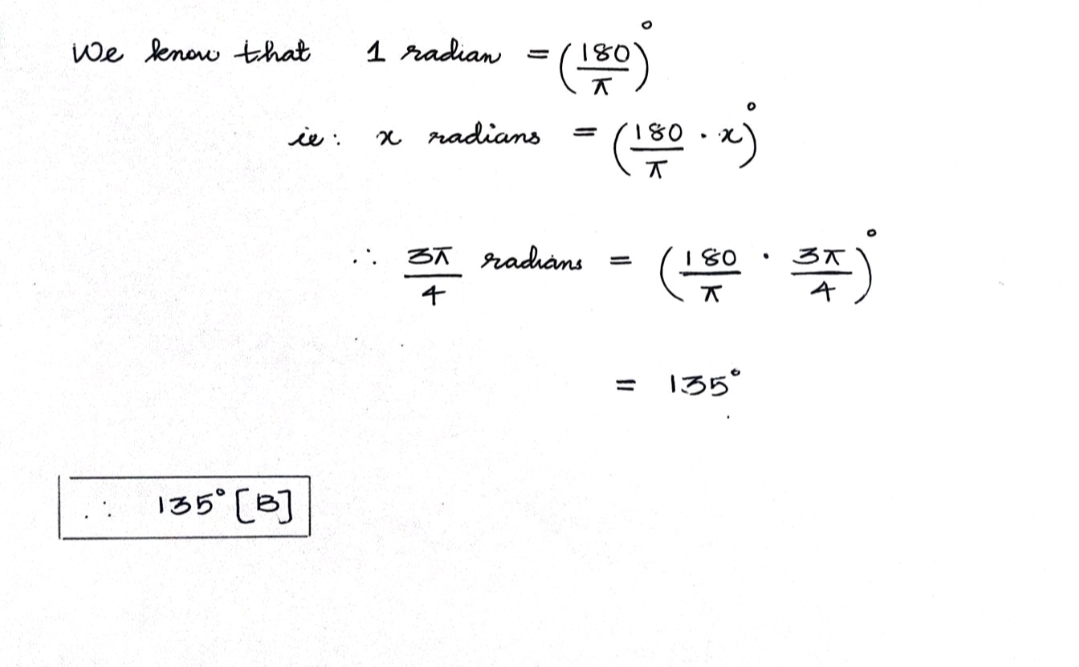 We know that 1 radian = (180/π)°
ie: x radians = (180/π · x)°
∴ 3π/4 radians = (180/π · 3π/4)°
= 135°
∴ 135° [B]